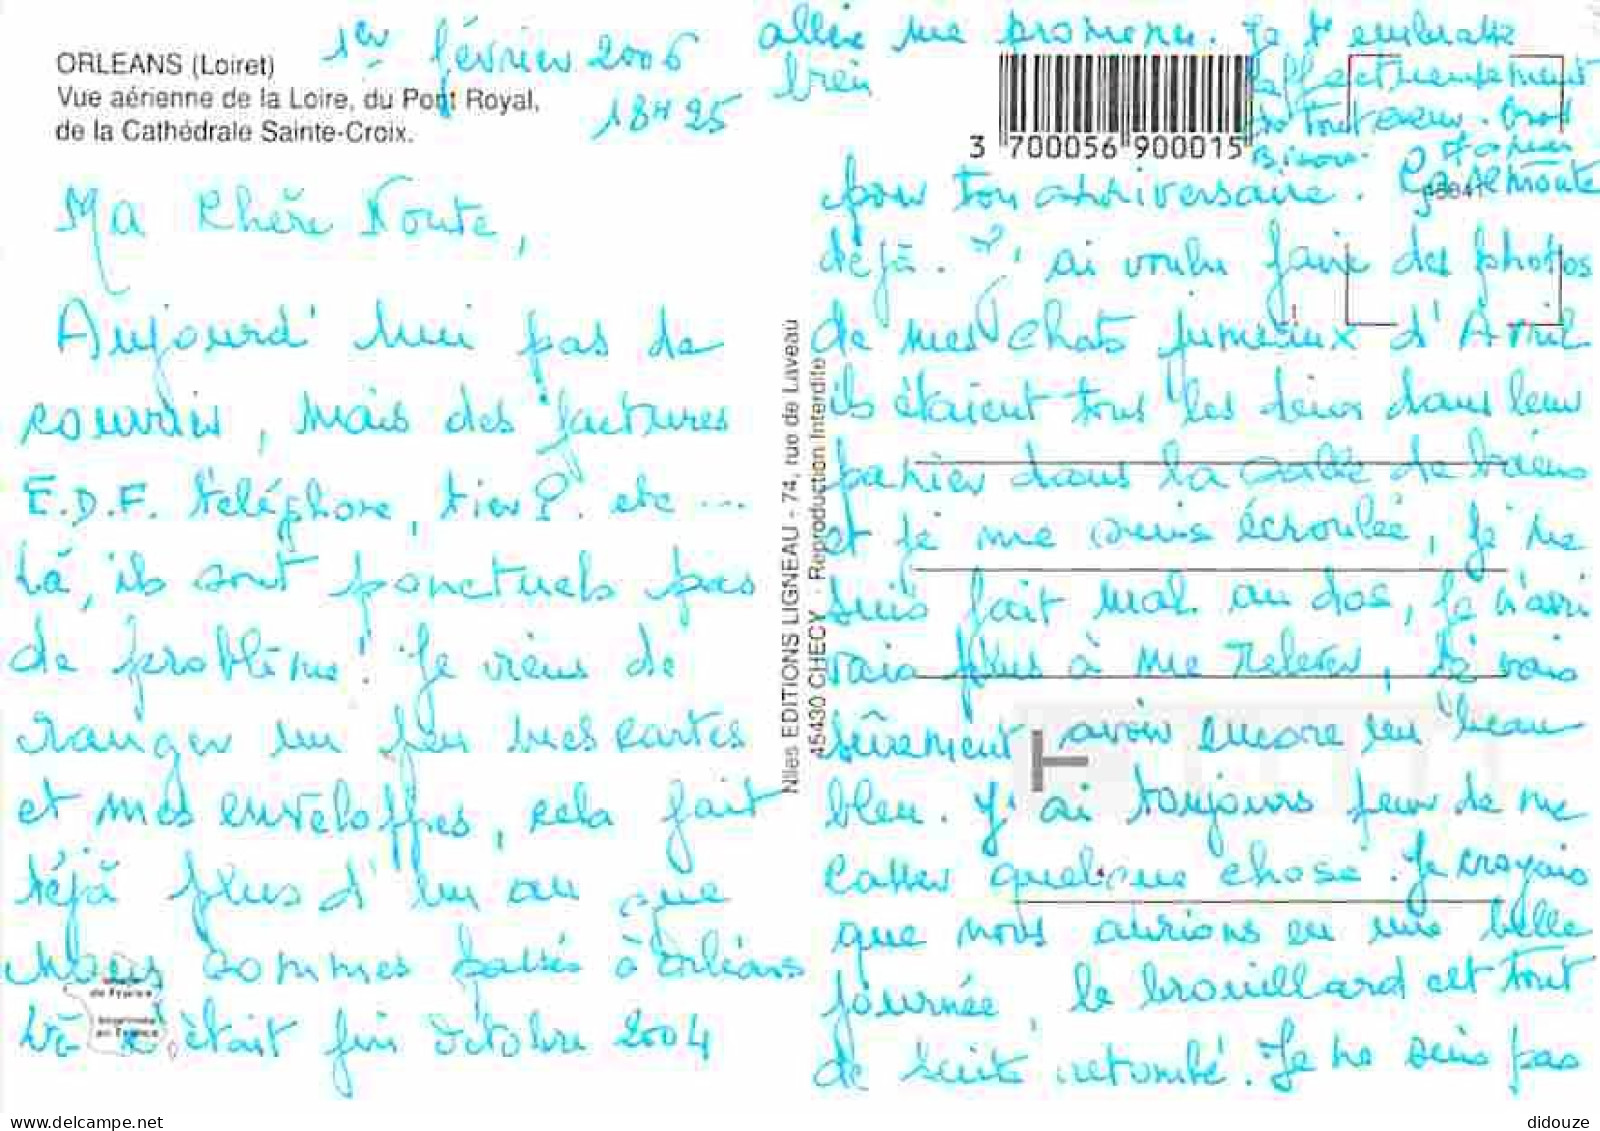 ORLEANS (Loiret)
Vue aérienne de la Loire, du Pont Royal,
de la Cathédrale Sainte-Croix.
1er février 2006
18H25
Ma Chère Noute,
Aujourd'hui pas de
courrier, mais des factures
E.D.F. téléphone, tier P. etc ...
Là, ils sont ponctuels pas
de problème! Je viens de
ranger un peu mes cartes
et mes enveloppes, cela fait
déjà plus d'un an que
nous sommes passés à Orléans
Là c'était fin Octobre 2004
Image
de France
Imprimée
en France
Nlles EDITIONS LIGNEAU - 74, rue de Laveau
45430 CHECY - Reproduction Interdite
3 700056 900015
pour ton anniversaire. Ça remonte
déjà. J'ai voulu faire des photos
de mes chats jumeaux d'Avril
ils étaient tous les deux dans leur
panier dans la salle de bains
et je me suis écroulée, je me
suis fait mal au dos, je n'arri
vais plus à me relever, je vais
sûrement avoir encore un beau
bleu. J'ai toujours peur de me
casser quelque chose. Je croyais
que nous aurions eu une belle
journée, le brouillard est tout
de suite retombé. Je ne suis pas
allée me promener. Je t'embrasse
bien affectueusement
de tout coeur. Gros
Bisous.
didouze
delcampe.net